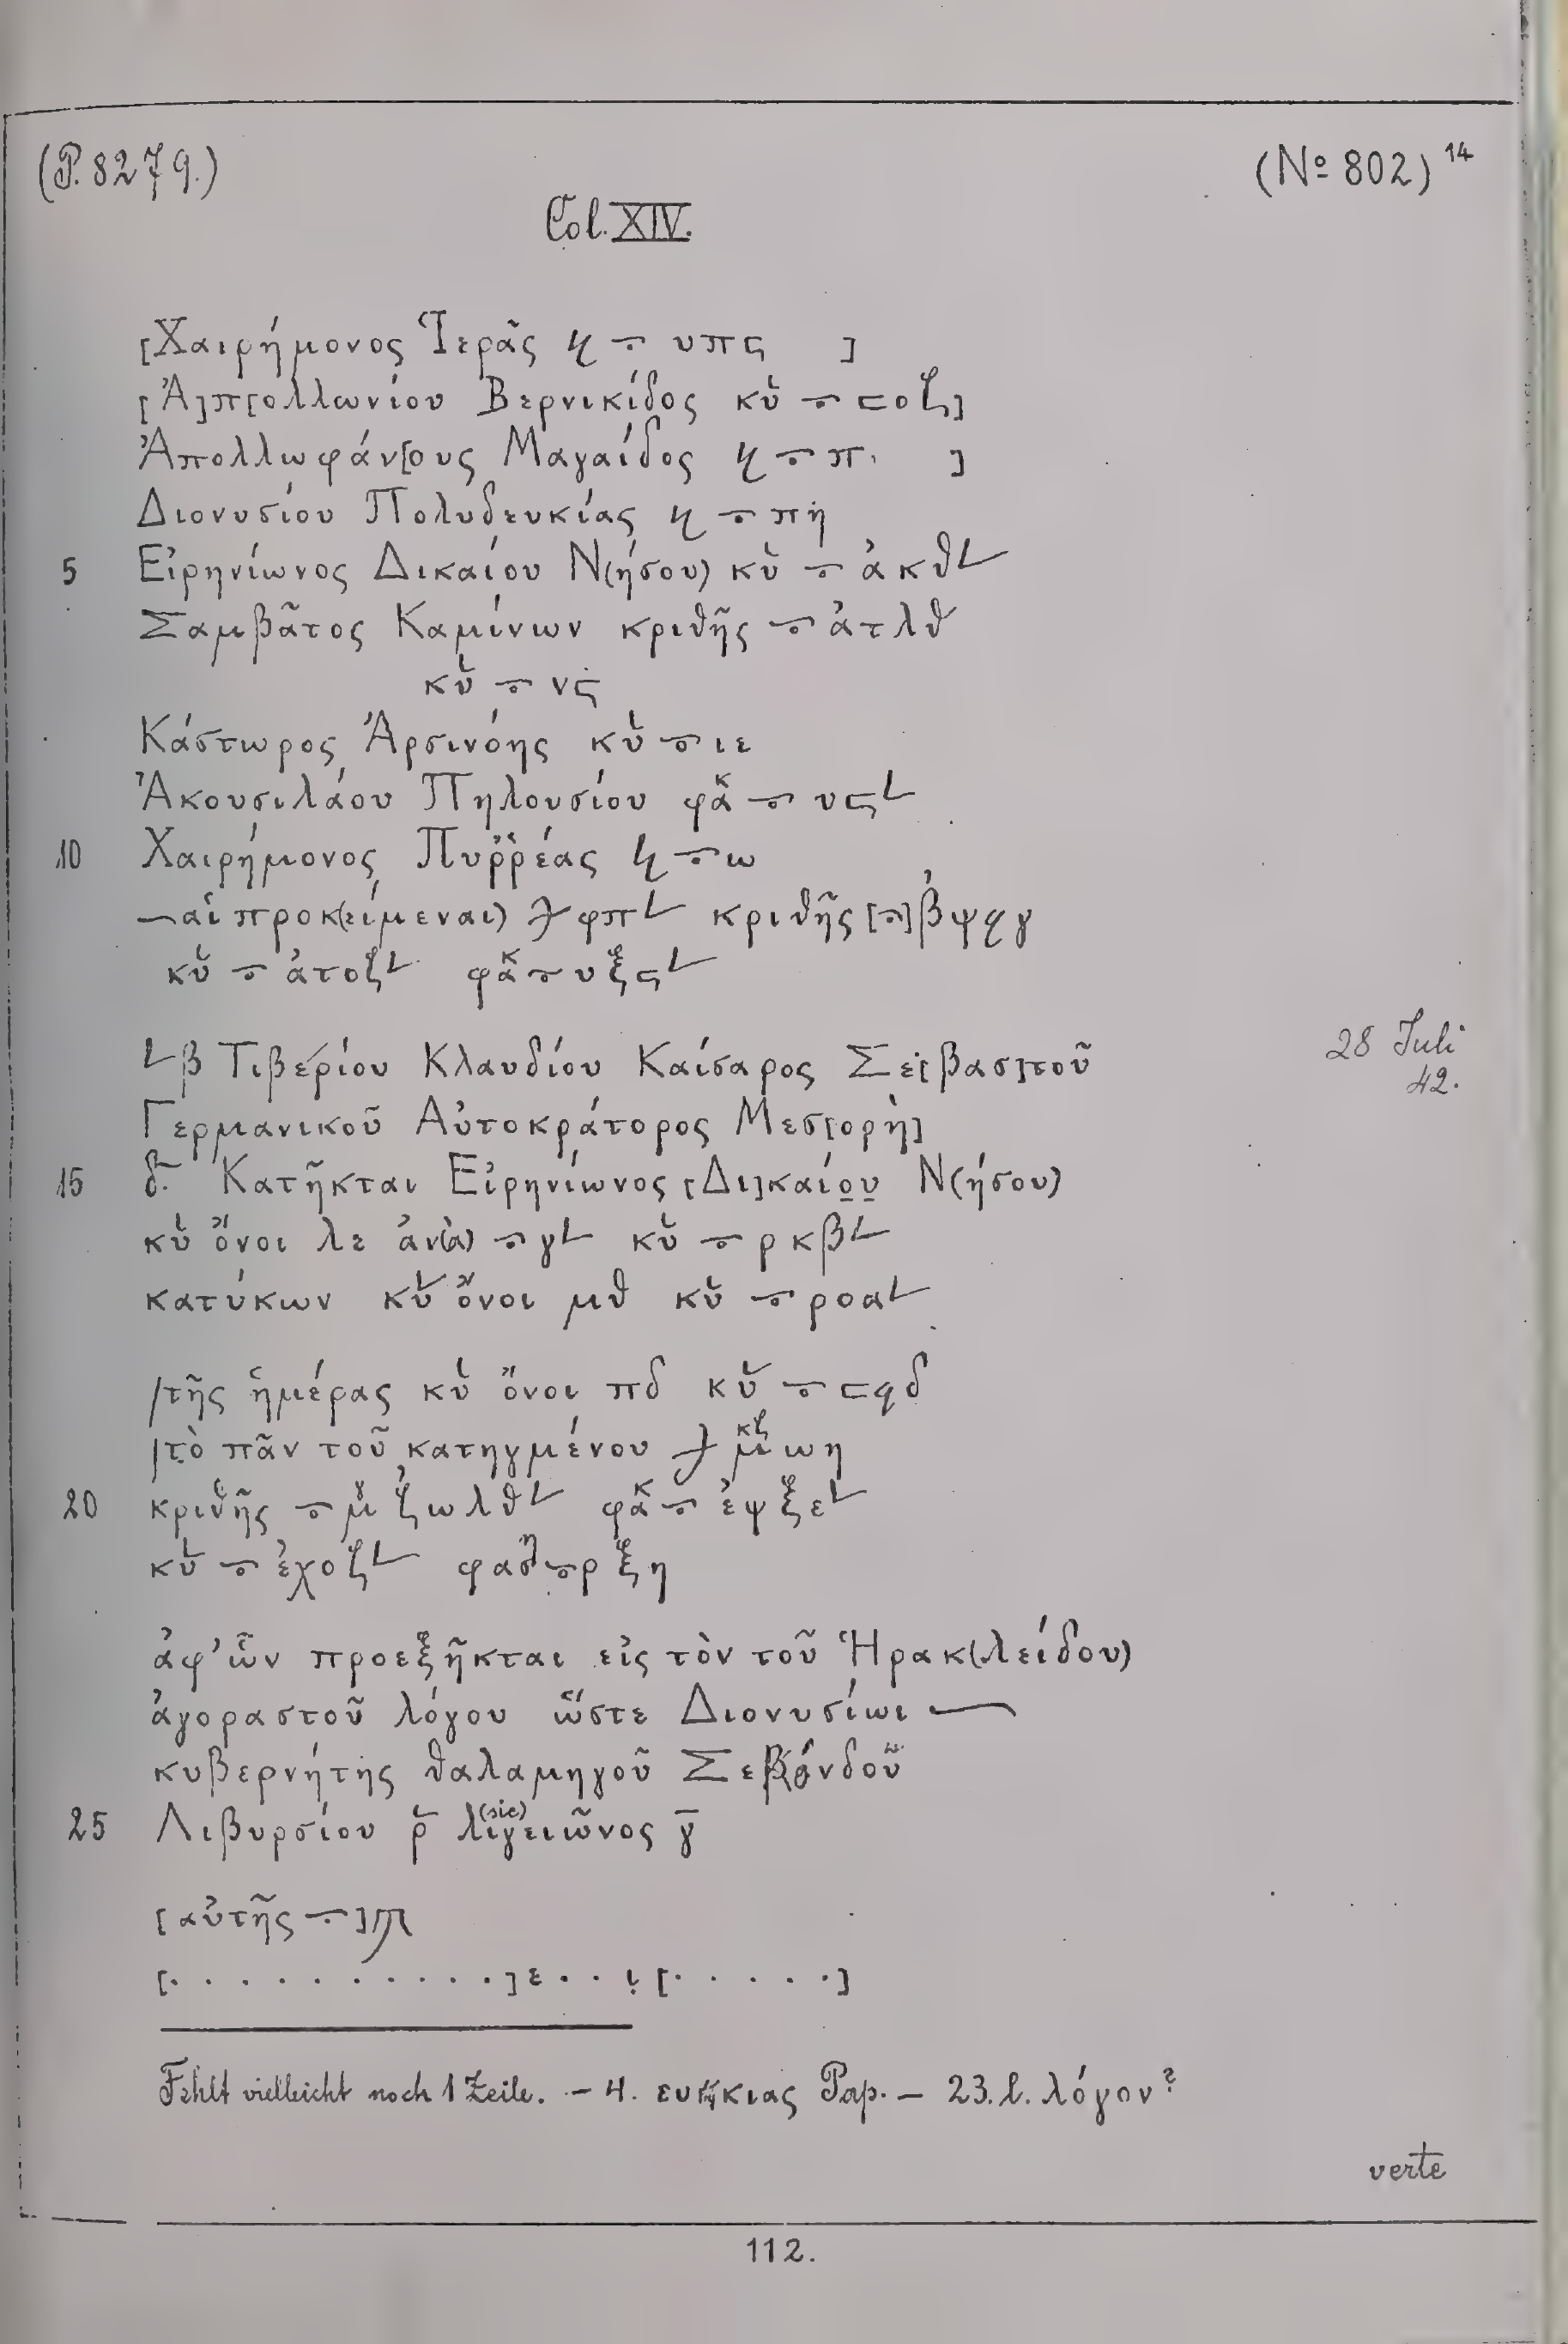 (P. 8279.)
(No 802) 14
Col. XIV.
[Χαιρήμονος Ἱερᾶς 𐅼 ⨪ υπϛ ]
[Ἀ]π[ολλωνίου Βερνικίδος κύ ⨪ σοζ]
Ἀπολλωφάν[ους Μαγαίδος ⨪ π. ]
Διονυσίου Πολυδευκίας ⨪ πη
5 Εἰρηνίωνος Δικαίου Ν(ήσου) κύ ⨪ ἀκθ𐅵
Σαμβᾶτος Καμίνων κριθῆς ⨪ ἀτλθ
κύ ⨪ νϛ
Κάστωρος Ἀρσινόης κύ ⨪ ιε
Ἀκουσιλάου Πηλουσίου φακ ⨪ υϛ𐅵
10 Χαιρήμονος Πυῤῥέας ⨪ ω
αἱ προκ(είμεναι) φπ𐅵 κριθῆς [⨪] βψϙγ
κύ ⨪ ἀτοζ𐅵 φακ ⨪ υξϛ𐅵
𐅹β Τιβερίου Κλαυδίου Καίσαρος Σε[βασ]τοῦ
28 Juli
42.
Γερμανικοῦ Αὐτοκράτορος Μεσ[ορὴ]
15 δ. Κατῆκται Εἰρηνίωνος [Δι]καίου Ν(ήσου)
κύ ὄνοι λε ἀν(ὰ) ⨪ γ𐅵 κύ ⨪ ρκβ𐅵
κατύκων κύ ὄνοι μθ κύ ⨪ ροα𐅵
/τῆς ἡμέρας κύ ὄνοι πδ κύ ⨪ σϙδ
/τὸ πᾶν τοῦ κατηγμένου μκζ ωη
20 κριθῆς ⨪ μγ ζωλθ𐅵 φακ ⨪ ἐψξε𐅵
κύ ⨪ ἐχοζ𐅵 φαση ⨪ ρξη
ἀφ’ ὧν προεξῆκται εἰς τὸν τοῦ Ἡρακ(λείδου)
ἀγοραστοῦ λόγου ὥστε Διονυσίωι
κυβερνήτης θαλαμηγοῦ Σεκόνδου
25 Λιβυρσίου ρ λιγειῶνος (sic) γ̅
[αὐτῆς ⨪] ϡ
[. . . . . . . . . . .] ε . . ι [. . . . . .]
Fehlt vielleicht noch 1 Zeile. – 4. ευκιας Pap. – 23. l. λόγον?
verte
112.